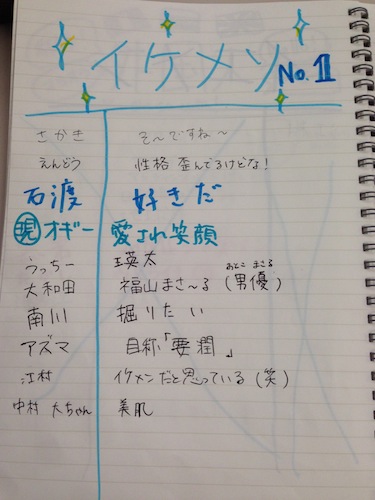 イケメン No.1
さかき そ〜ですね〜
えんどう 性格 歪んでるけどな!
石渡 好きだ
現 オギー 愛され笑顔
うっちー 瑛太
おとこ まさる
大和田 福山まさ〜る (男優)
南川 掘りたい
アズマ 自称「要潤」
江村 イケメンだと思っている (笑)
中村 大ちゃん 美肌